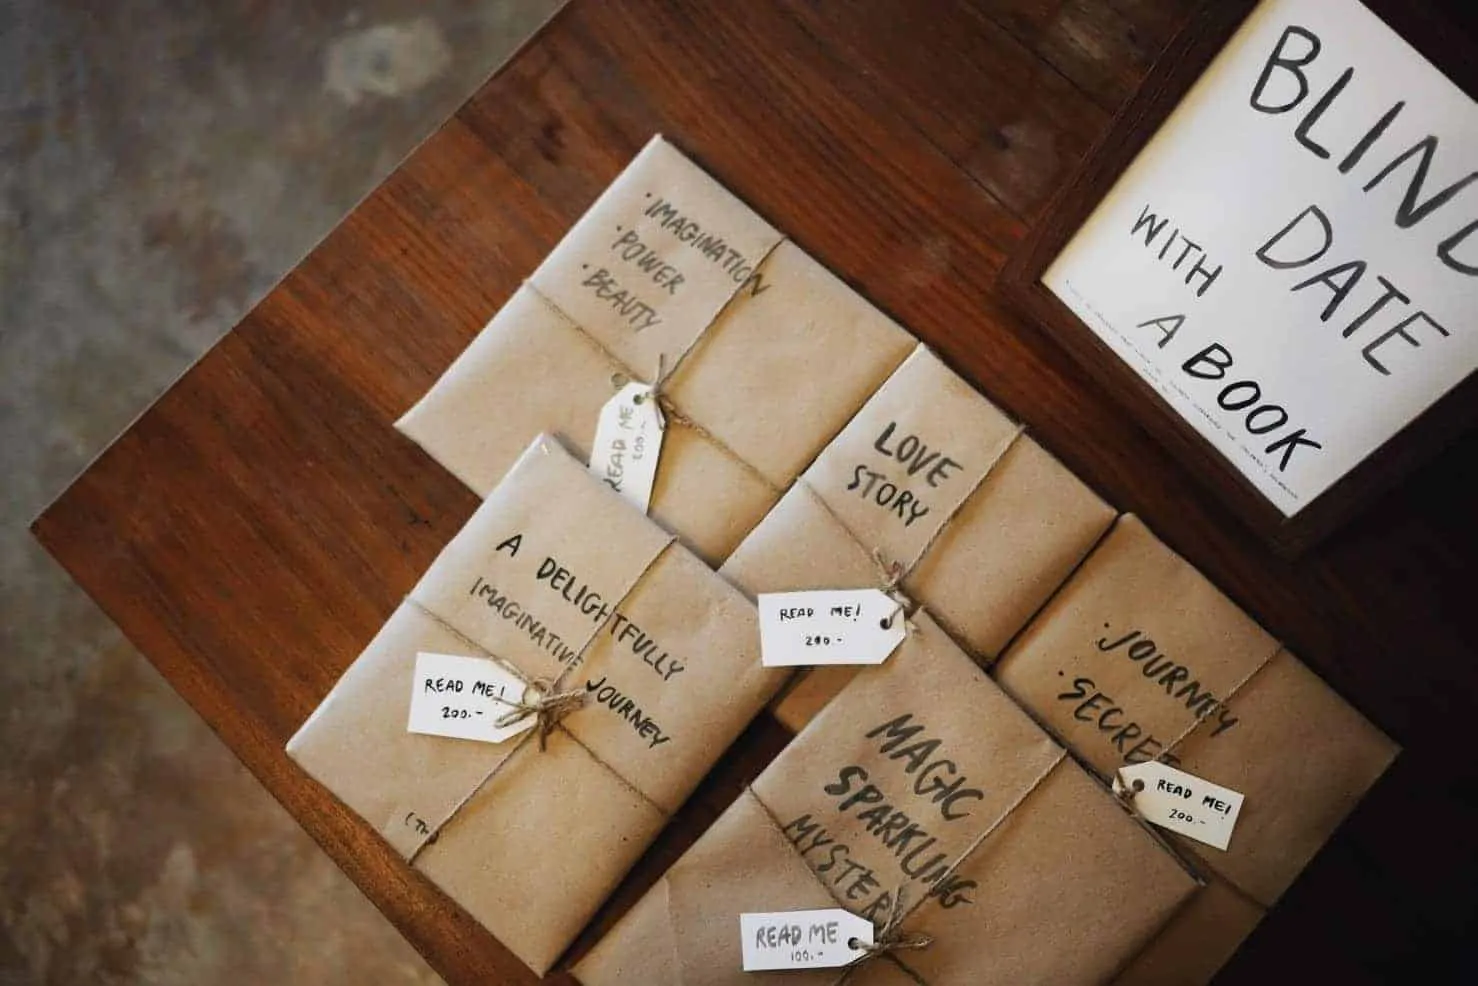 BLIND
DATE
WITH
A BOOK
·IMAGINATION
·POWER
·BEAUTY
READ ME
200.-
LOVE
STORY
READ ME!
200.-
A DELIGHTFULLY
IMAGINATIVE
JOURNEY
READ ME!
200.-
(TH
·JOURNEY
·SECRET
READ ME!
200.-
MAGIC
SPARKLING
MYSTER
READ ME
100.-